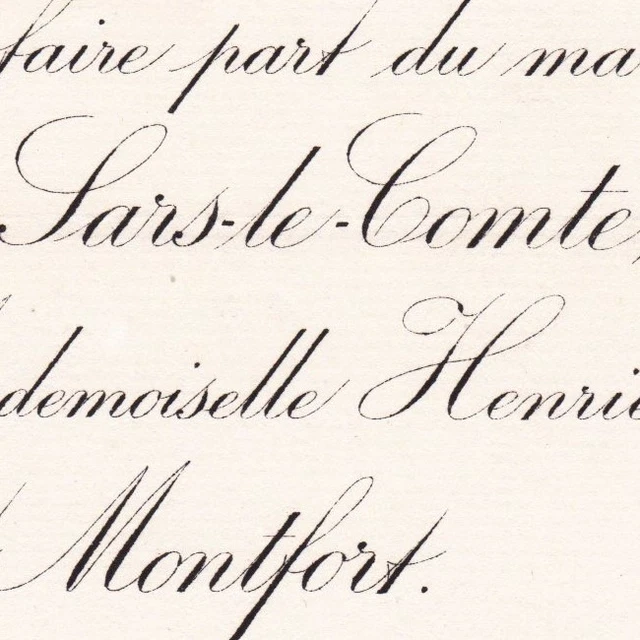 faire part du ma
Sars-le-Comte,
demoiselle Henrie
Montfort.